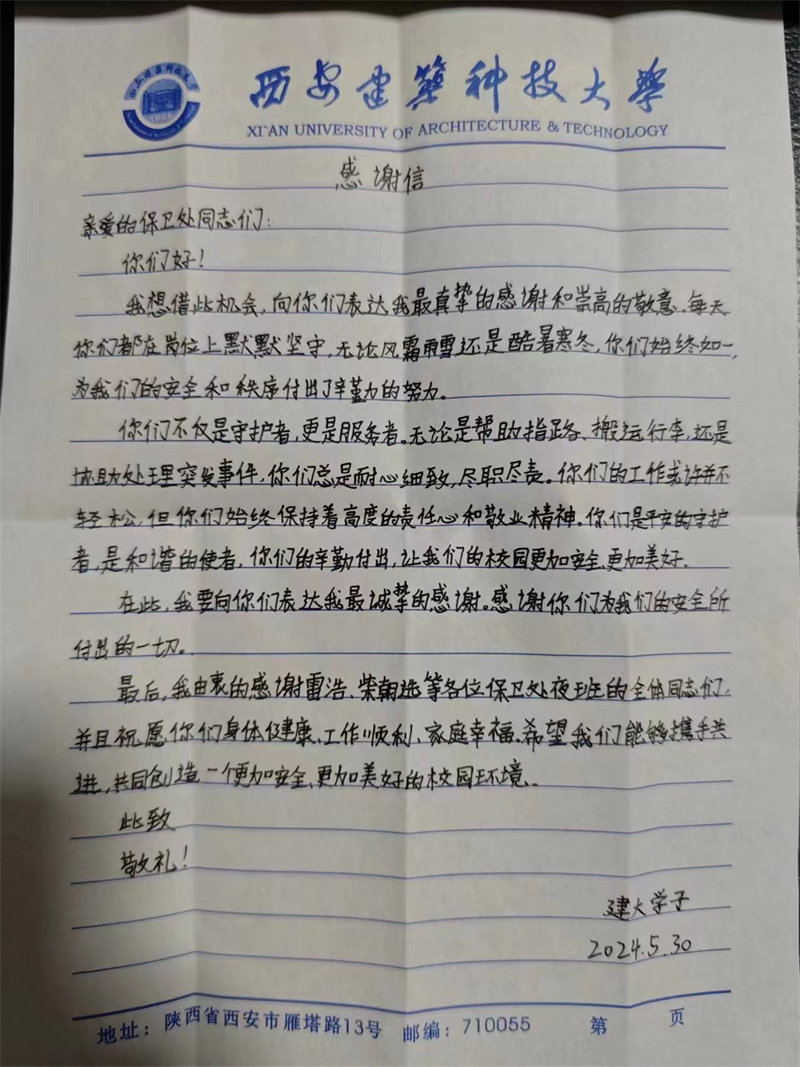 西安建筑科技大学
XI'AN UNIVERSITY OF ARCHITECTURE & TECHNOLOGY
感谢信
亲爱的保卫处同志们：
你们好！
我想借此机会，向你们表达我最真挚的感谢和崇高的敬意。每天
你们都在岗位上默默坚守，无论风霜雨雪还是酷暑寒冬，你们始终如一，
为我们的安全和秩序付出了辛勤力的努力。
你们不仅是守护者，更是服务者。无论是帮助指路、搬运行李，还是
协助处理突发事件，你们总是耐心细致，尽职尽责。你们的工作或许并不
轻松，但你们始终保持着高度的责任心和敬业精神。你们是平安的守护
者，是和谐的使者，你们的辛勤付出，让我们的校园更加安全、更加美好。
在此，我要向你们表达我最诚挚的感谢。感谢你们为我们的安全所
付出的一切。
最后，我由衷的感谢雷浩、柴朝选等各位保卫处夜班的全体同志们，
并且祝愿你们身体健康、工作顺利、家庭幸福。希望我们能够携手共
进，共同创造一个更加安全、更加美好的校园环境。
此致
敬礼！
建大学子
2024.5.30
地址：陕西省西安市雁塔路13号 邮编：710055 第 页